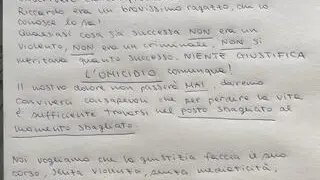 Riccardo era un bravissimo ragazzo, chi lo
conosce lo sa!
Qualsiasi cosa sia successa NON era un
violento, NON era un criminale, NON si
meritava quanto successo. NIENTE GIUSTIFICA
L'OMICIDIO comunque!
Il nostro dolore non passerà MAI, daremo
convivere consapevoli che per perdere la vita
è sufficiente trovarsi nel posto sbagliato al
momento sbagliato.
Noi vogliamo che la giustizia faccia il suo
corso, senza violenza, senza mediaticità,